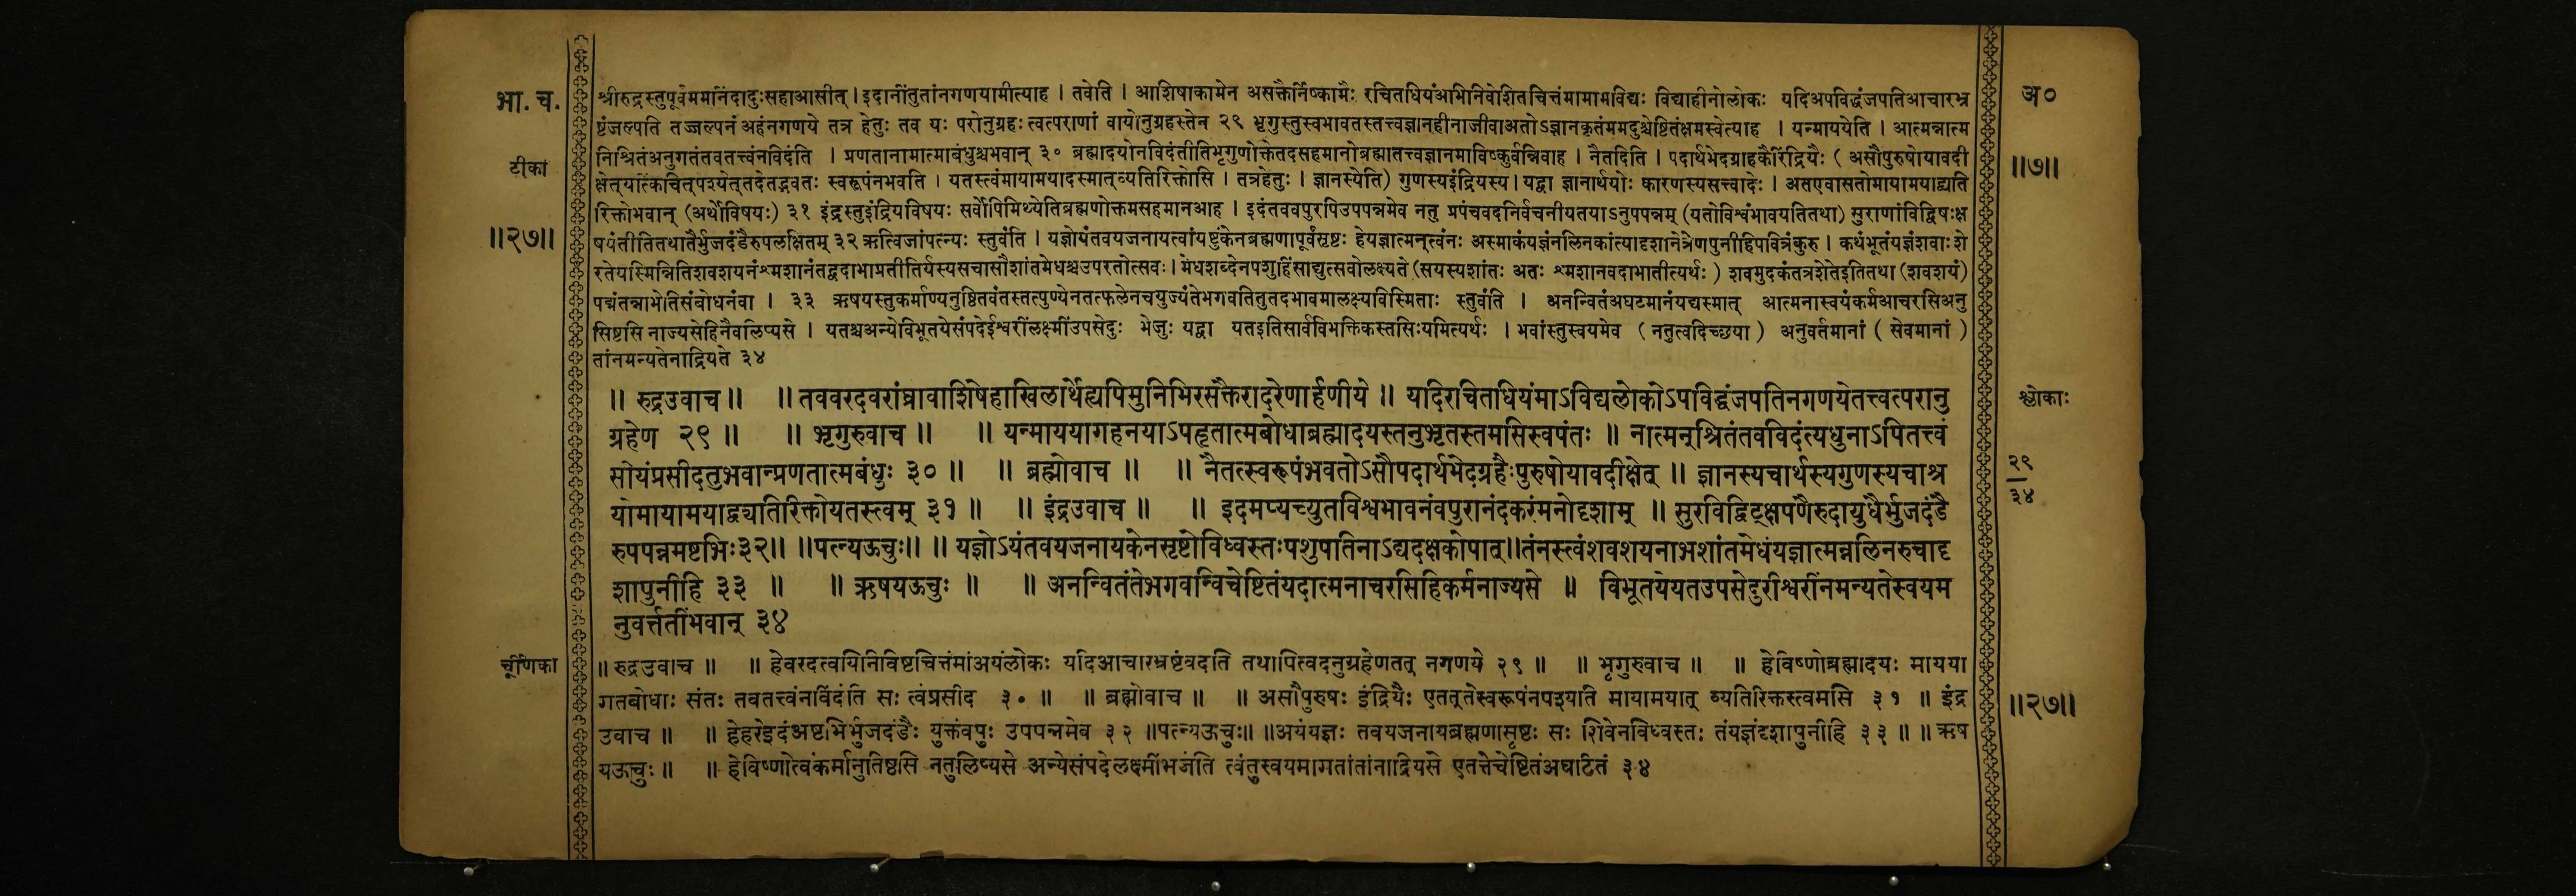 भा. च.
टीका
॥२७॥
श्रीरुद्रस्तुपूर्वंममनिंदादुःसहाआसीत् । इदानींतुतांनगणयामीत्याह । तवेति । आशिषाकामेन असक्तैर्निष्कामैः रचितधियंअभिनिवेशितचित्तंमामामविद्यः विद्याहीनोलोकः यदिअपविद्धंजपतिआचारभ्र
ष्टंजल्पति तज्जल्पनं अहंनगणये तत्र हेतुः तव यः परोनुग्रहः त्वत्पराणां वायोनुग्रहस्तेन २९ भृगुस्तुस्वभावतस्तत्त्वज्ञानहीनाजीवाअतोऽज्ञानकृतंममदुश्चेष्टितंक्षमस्वेत्याह । यन्माययेति । आत्मन्नात्म
निश्रितंअनुगतंतवतत्त्वंनविदंति । प्रणतानामात्माबंधुश्चभवान् ३० ब्रह्मादयोनविदंतीतिभृगुणोक्तंतदसहमानोब्रह्मातत्त्वज्ञानमाविष्कुर्वन्निवाह । नैतदिति । पदार्थभेदग्राहकैरिंद्रियैः ( असौपुरुषोयावदी
क्षेत्यत्किंचित्पश्येत्तदेतद्भवतः स्वरूपंनभवति । यतस्त्वंमायामयादस्मात्व्यतिरिक्तोसि । तत्रहेतुः । ज्ञानस्येति) गुणस्यइंद्रियस्य । यद्वा ज्ञानार्थयोः कारणस्यसत्त्वादेः । अतएवासतोमायामयाद्व्यति
रिक्तोभवान् (अर्थोविषयः) ३१ इंद्रस्तुइंद्रियविषयः सर्वोपिमिथ्येतिब्रह्मणोक्तमसहमानआह । इदंतववपुरपिउपपन्नमेव नतु प्रपंचवदनिर्वचनीयतयाऽनुपपन्नम् (यतोविश्वंभावयतितथा) सुराणांविद्विषःक्ष
पयंतीतितथातैर्भुजदंडैरुपलक्षितम् ३२ ऋत्विजांपत्न्यः स्तुवंति । यज्ञोयंतवयजनायत्वांयष्टुंकेनब्रह्मणापूर्वंसृष्टः हेयज्ञात्मन्त्वंनः अस्माकंयज्ञंनलिनकांत्यादृशानेत्रेणपुनीहिपवित्रंकुरु । कथंभूतंयज्ञंशवाःशे
रतेयस्मिन्नितिशवशयनंश्मशानंतद्वदाभाप्रतीतिर्यस्यसचासौशांतमेधश्चउपरतोत्सवः । मेधशब्देनपशुहिंसाद्युत्सवोलक्ष्यते (सयस्यशांतः अतः श्मशानवदाभातीत्यर्थः ) शवमुदकंतत्रशेतेइतितथा (शवशयं)
पद्मंतन्नाभेतिसंबोधनंवा । ३३ ऋषयस्तुकर्माण्यनुष्ठितवंतस्तत्पुण्येनतत्फलेनचयुज्यंतेभगवतितुतदभावमालक्ष्यविस्मिताः स्तुवंति । अनन्वितंअघटमानंयद्यस्मात् आत्मनास्वयंकर्मआचरसिअनु
सिष्टसि नाज्यसेहिनैवलिप्यसे । यतश्चअन्येविभूतयेसंपदेईश्वरींलक्ष्मींउपसेदुः भेजुः यद्वा यतइतिसार्वविभक्तिकस्तसिःयमित्यर्थः । भवांस्तुस्वयमेव ( नतुत्वदिच्छया ) अनुवर्तमानां ( सेवमानां )
तांनमन्यतेनाद्रियते ३४
॥ रुद्रउवाच ॥ ॥ तववरदवरांघ्रावाशिषेहाखिलार्थेह्यपिमुनिभिरसक्तैरादरेणार्हणीये ॥ यदिरचितधियंमाऽविद्यलोकोऽपविद्धंजपतिनगणयेतत्त्वत्परानु
ग्रहेण २९ ॥ ॥ भृगुरुवाच ॥ ॥ यन्माययागहनयाऽपहृतात्मबोधाब्रह्मादयस्तनुभृतस्तमसिस्वपंतः ॥ नात्मन्श्रितंतवविदंत्यधुनाऽपितत्त्वं
सोयंप्रसीदतुभवान्प्रणतात्मबंधुः ३० ॥ ॥ ब्रह्मोवाच ॥ ॥ नैतत्स्वरूपंभवतोऽसौपदार्थभेदग्रहैःपुरुषोयावदीक्षेत् ॥ ज्ञानस्यचार्थस्यगुणस्यचाश्र
योमायामयाद्व्यतिरिक्तोयतस्त्वम् ३१ ॥ ॥ इंद्रउवाच ॥ ॥ इदमप्यच्युतविश्वभावनंवपुरानंदकरंमनोदृशाम् ॥ सुरविद्विट्क्षपणैरुदायुधैर्भुजदंडै
रुपपन्नमष्टभिः३२॥ ॥पत्न्यऊचुः॥ ॥ यज्ञोऽयंतवयजनायकेनसृष्टोविध्वस्तःपशुपतिनाऽद्यदक्षकोपात्॥तंनस्त्वंशवशयनाभशांतमेधंयज्ञात्मन्नलिनरुचादृ
शापुनीहि ३३ ॥ ॥ ऋषयऊचुः ॥ ॥ अनन्वितंतेभगवन्विचेष्टितंयदात्मनाचरसिहिकर्मनाज्यसे ॥ विभूतयेयतउपसेदुरीश्वरींनमन्यतेस्वयम
नुवर्त्ततींभवान् ३४
चूर्णिका
॥ रुद्रउवाच ॥ ॥ हेवरदत्वयिनिविष्टचित्तंमांअयंलोकः यदिआचारभ्रष्टंवदति तथापित्वदनुग्रहेणतत् नगणये २९ ॥ ॥ भृगुरुवाच ॥ ॥ हेविष्णोब्रह्मादयः मायया
गतबोधाः संतः तवतत्त्वंनविदंति सः त्वंप्रसीद ३० ॥ ॥ ब्रह्मोवाच ॥ ॥ असौपुरुषः इंद्रियैः एतत्तेस्वरूपंनपश्यति मायामयात् व्यतिरिक्तस्त्वमसि ३१ ॥ इंद्र
उवाच ॥ ॥ हेहरेइदंअष्टभिर्भुजदंडैः युक्तंवपुः उपपन्नमेव ३२ ॥पत्न्यऊचुः॥ ॥अयंयज्ञः तवयजनायब्रह्मणासृष्टः सः शिवेनविध्वस्तः तंयज्ञंदृशापुनीहि ३३ ॥ ॥ ऋष
यऊचुः ॥ ॥ हेविष्णोत्वंकर्मानुतिष्ठसि नतुलिप्यसे अन्येसंपदेलक्ष्मींभजंति त्वंतुस्वयमागतांतांनाद्रियसे एतत्तेचेष्टितंअघटितं ३४
अ०
॥७॥
श्लोकाः
२९
३४
॥२७॥